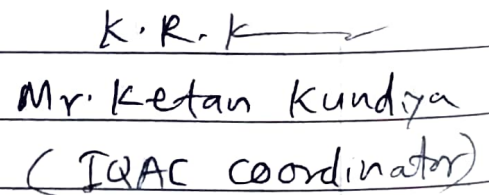 K. R. K
Mr. Ketan Kundiya
( IQAC coordinator)